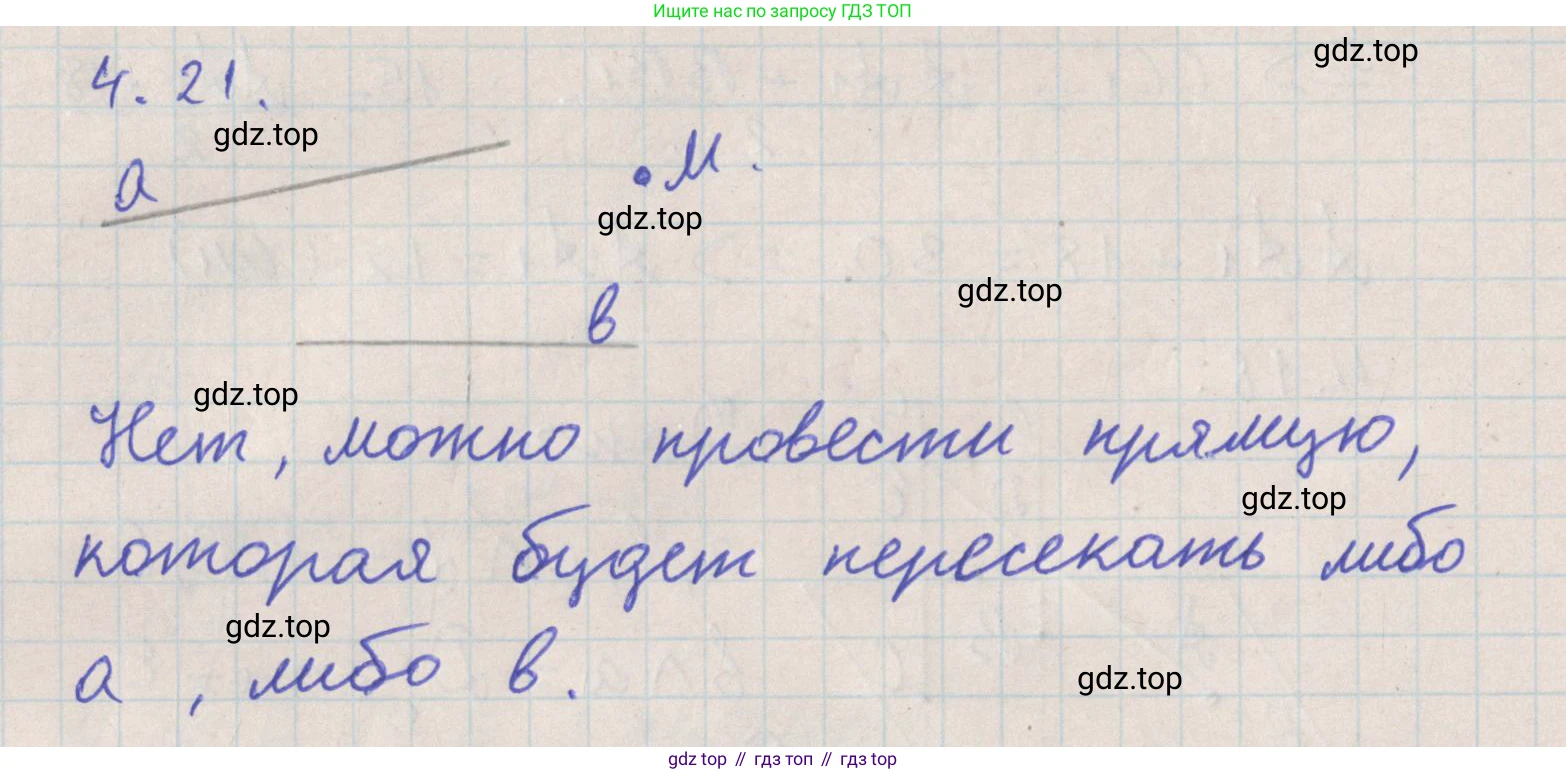 Ищите нас по запросу ГДЗ ТОП
gdz.top
4. 21.
gdz.top
a
. М.
gdz.top
в
gdz.top
gdz.top
Нет, можно провести прямую,
gdz.top
которая будет пересекать либо
gdz.top
а, либо в.
gdz.top
gdz top // гдз топ // гдз top